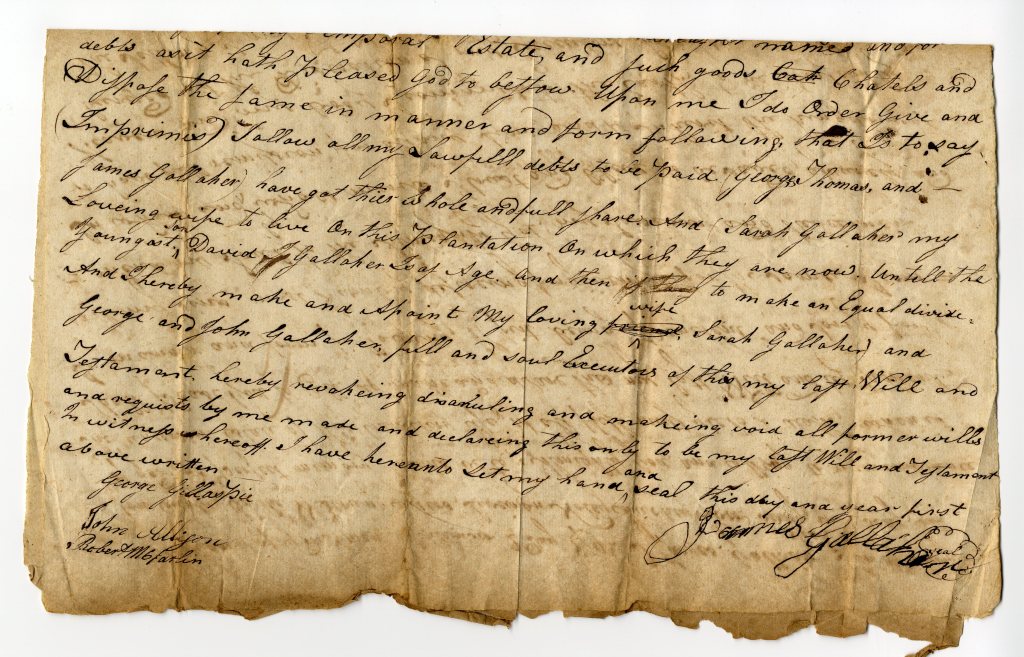 Temporal Estate, and such goods named and for
debts as it hath pleased God to bestow Upon me I do Order Give and
Disspose the same in manner and form following, that Is to say
(Imprimis) I allow all my Lawfull debts to be paid George, Thomas, and
James Gallaher) have got thier whole and full share And (Sarah Gallaher) my
Loveing wife to live On this Plantation On which they are now. Untill the
Youngast son David Gallaher Is of Age And then to make an Equal divide.
And I hereby make and Apoint My loving wife Sarah Gallaher) and
George and John Gallaher, full and soul Executors of this my last Will and
Testament, hereby revokeing disanuling and makeing void all former wills
and requists by me made and declareing this only to be my last Will and Testament
In witness whereoff I have hereunto Set my hand and seal this day and year first
above written
George Gillaspie
John Allison
Robert McFarlin
James Gallaher seal